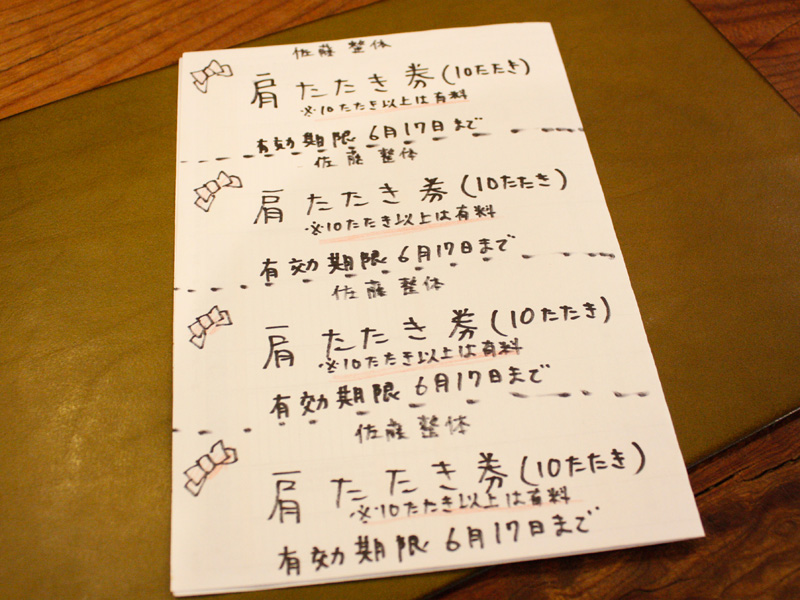 佐藤 整体
肩たたき券(10たたき)
※10たたき以上は有料
有効期限 6月17日まで
佐藤 整体
肩たたき券(10たたき)
※10たたき以上は有料
有効期限 6月17日まで
佐藤 整体
肩たたき券(10たたき)
※10たたき以上は有料
有効期限 6月17日まで
佐藤 整体
肩たたき券(10たたき)
※10たたき以上は有料
有効期限 6月17日まで